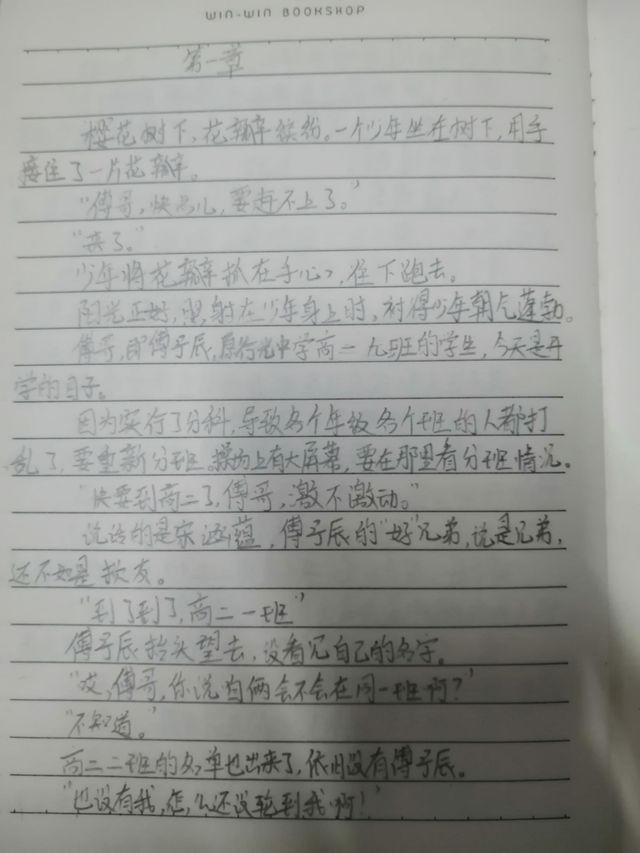 WIN-WIN BOOKSHOP
第一章
樱花树下，花瓣缤纷。一个少年坐在树下，用手
接住了一片花瓣。
“傅哥，快点儿，要赶不上了。”
“来了。”
少年将花瓣抓在手心，往下跑去。
阳光正好，照射在少年身上时，衬得少年朝气蓬勃。
傅哥，即傅予辰，原行光中学高一九班的学生，今天是开
学的日子。
因为实行了分科，导致各个年级各个班的人都打
乱了，要重新分班。操场上有大屏幕，要在那里看分班情况。
“快要到高二了，傅哥，激不激动。”
说话的是宋涵蕴，傅予辰的“好”兄弟，说是兄弟，
还不如是损友。
“到了到了，高二一班”
傅予辰抬头望去，没看见自己的名字。
“哎，傅哥，你说咱俩会不会在同一班啊？”
“不知道。”
高二二班的名单也出来了，依旧没有傅予辰。
“也没有我，怎么还没轮到我啊！”